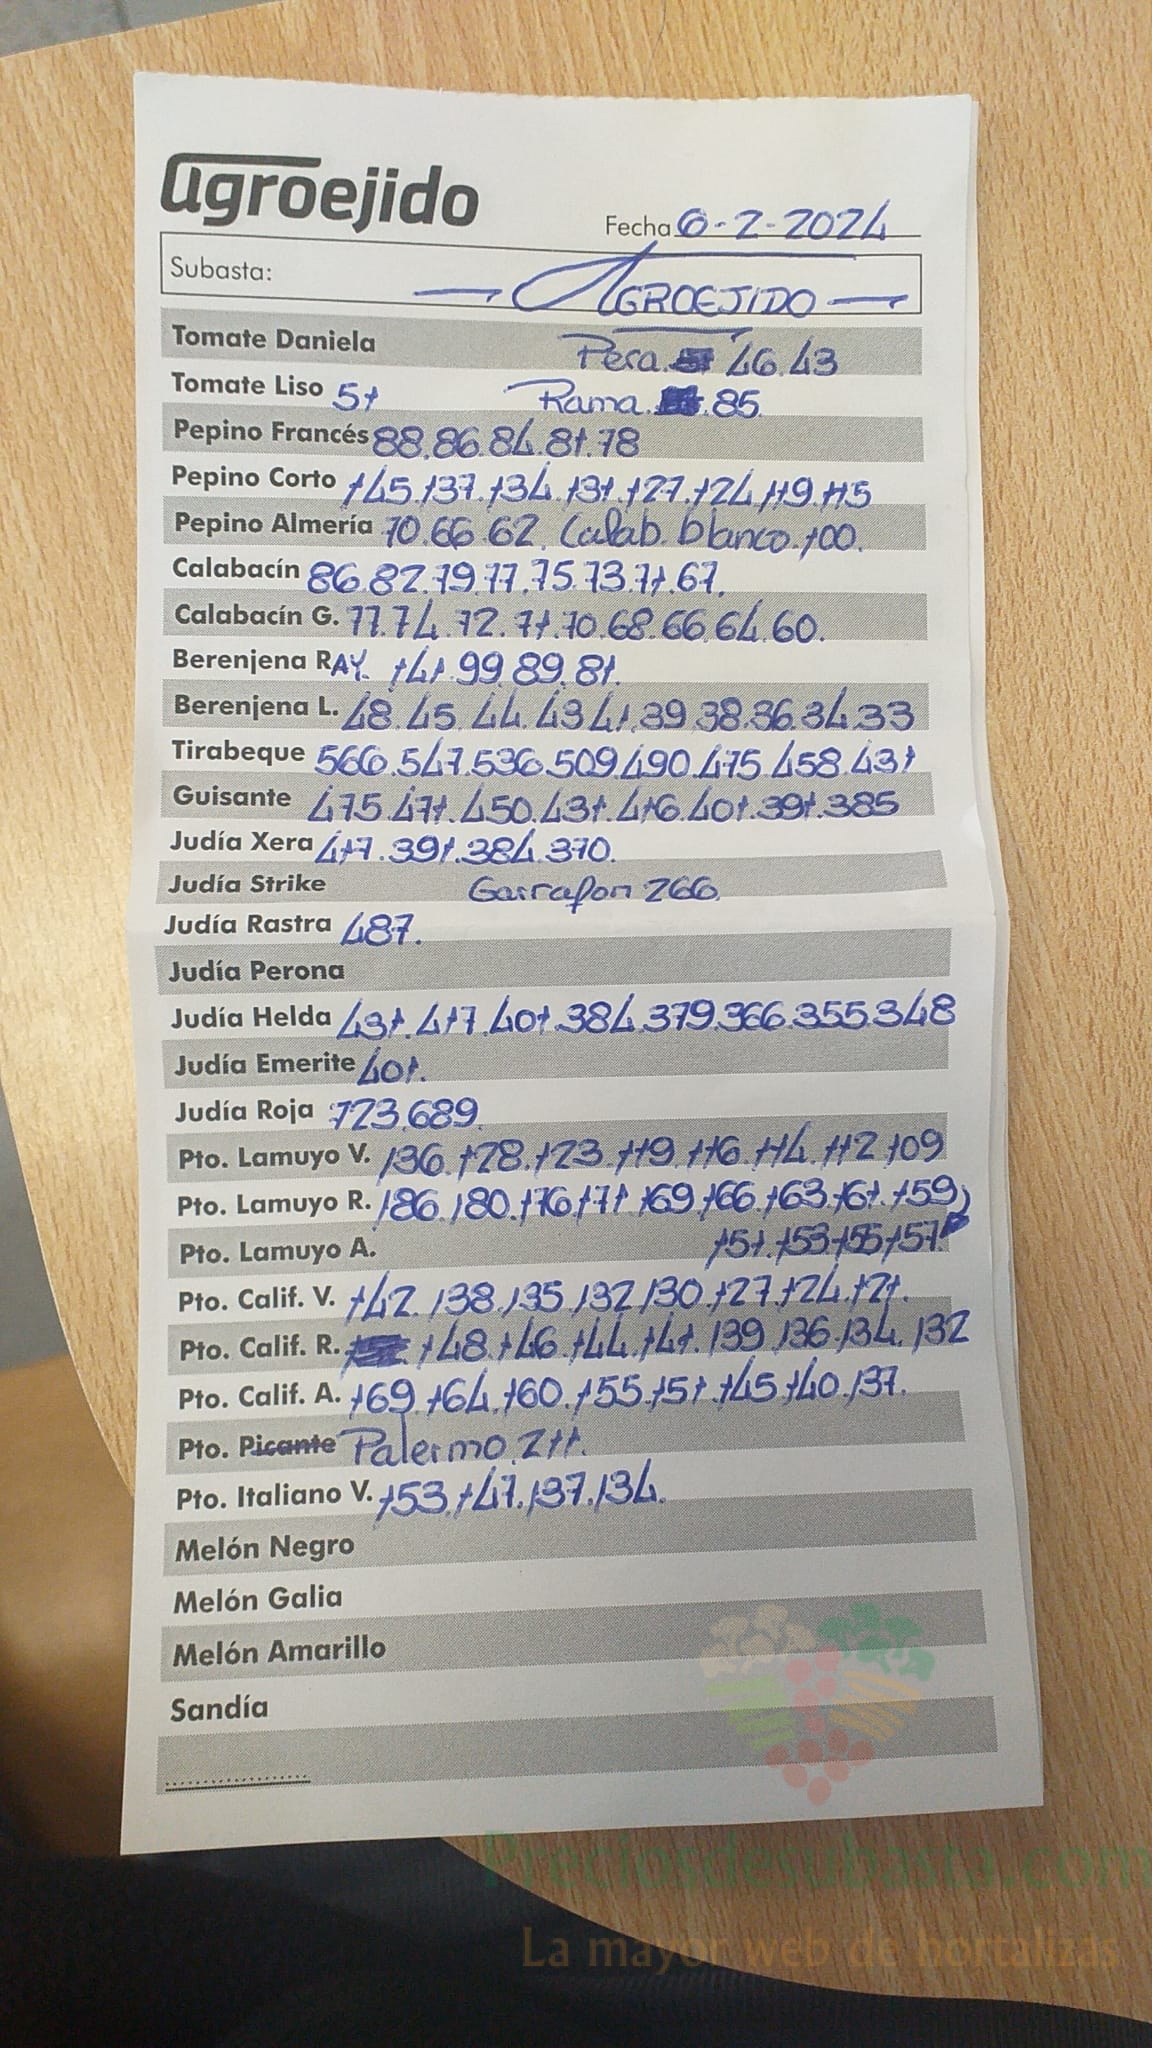 agroejido
Fecha 6-2-2024
Subasta: — AGROEJIDO —
Tomate Daniela Pera. 46.43
Tomate Liso 51 Rama. 85.
Pepino Francés 88.86.84.81.78
Pepino Corto 145.137.134.131.127.124.119.115
Pepino Almería 70.66.62. Calab. blanco.100.
Calabacín 86.82.79.77.75.73.71.67.
Calabacín G. 77.74.72.71.70.68.66.64.60.
Berenjena RAY. 141.99.89.81.
Berenjena L. 48.45.44.43.41.39.38.36.34.33
Tirabeque 566.547.536.509.490.475.458.431
Guisante 475.471.450.431.416.401.391.385
Judía Xera 417.391.384.370.
Judía Strike Garrafon 266.
Judía Rastra 487.
Judía Perona
Judía Helda 431.417.401.384.379.366.355.348
Judía Emerite 401.
Judía Roja 723.689.
Pto. Lamuyo V. 136.128.123.119.116.114.112.109
Pto. Lamuyo R. 186.180.176.171.169.166.163.161.159
Pto. Lamuyo A. 151.153.155.157.
Pto. Calif. V. 142.138.135.132.130.127.124.121.
Pto. Calif. R. 148.146.144.141.139.136.134.132
Pto. Calif. A. 169.164.160.155.151.145.140.137.
Pto. Picante Palermo.211.
Pto. Italiano V. 153.147.137.134.
Melón Negro
Melón Galia
Melón Amarillo
Sandía
Preciosdesubasta.com
La mayor web de hortalizas